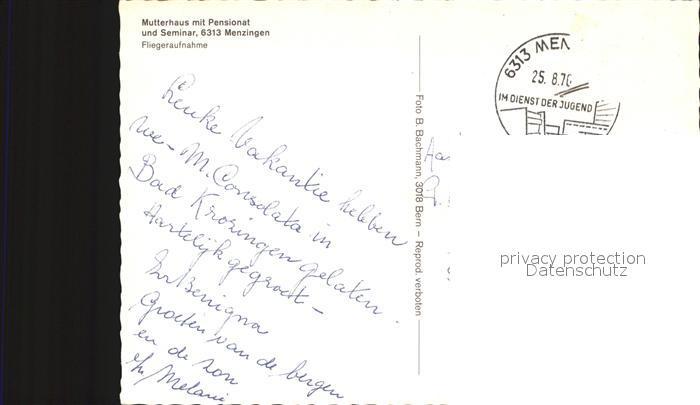 Mutterhaus mit Pensionat
und Seminar, 6313 Menzingen
Fliegeraufnahme
Leuke Vakantie hebben
we - M. Consolata in
Bad Krozingen gelaten.
Hartelijk gegroet -
Zr Benigna
Groeten van de bergen
en de zon
Zr Melanie
Foto B. Bachmann, 3018 Bern – Reprod. verboten
6313 MEN
25. 8.76
IM DIENST DER JUGEND
privacy protection
Datenschutz